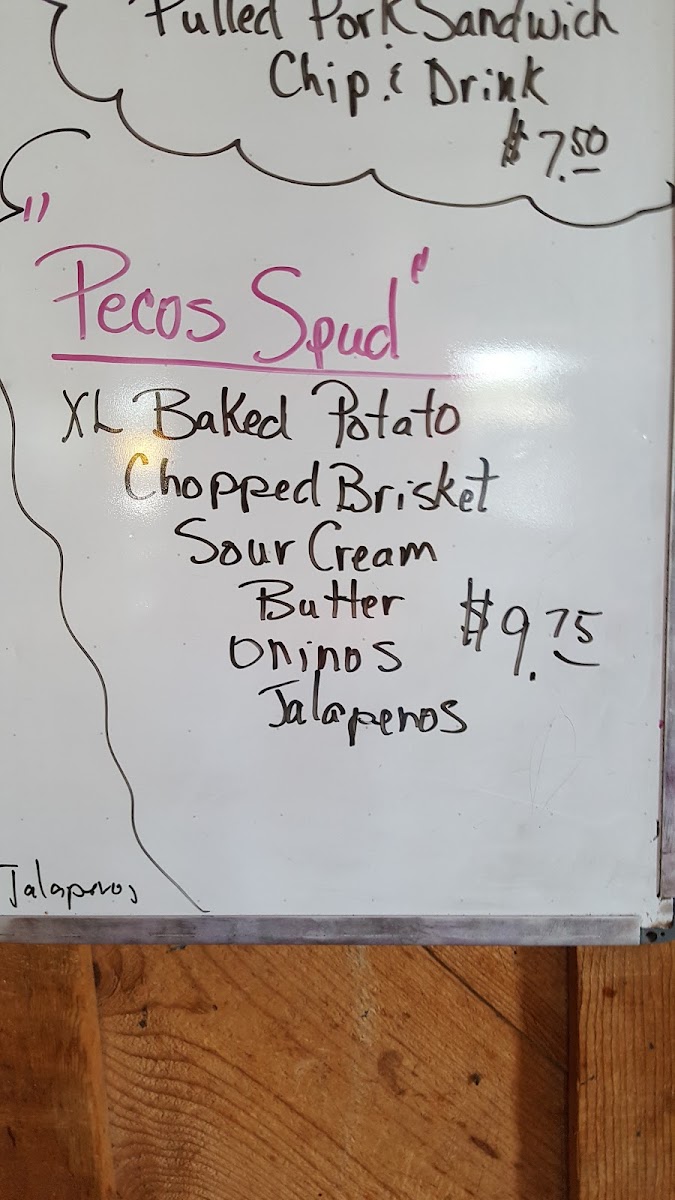 Pulled Pork Sandwich
Chip & Drink
$7.50
"Pecos Spud"
XL Baked Potato
Chopped Brisket
Sour Cream
Butter
Oninos
$9.75
Jalapenos
Jalapenos